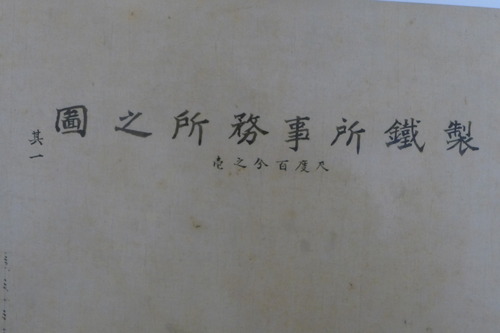 製鐵所事務所之圖
尺度百分之壱
其一